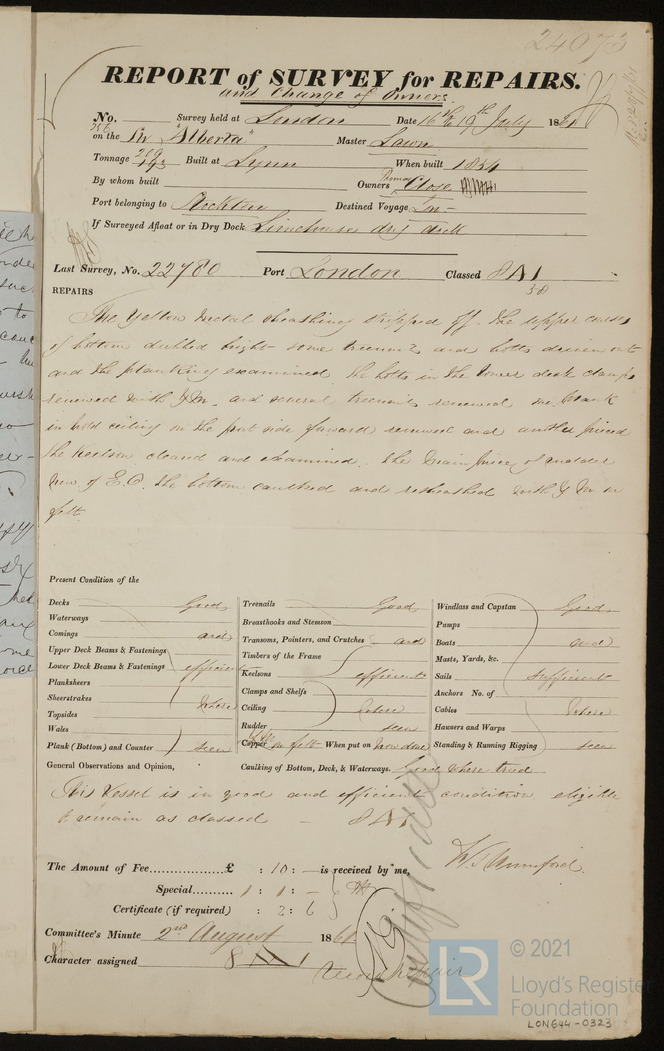 24073
REPORT of SURVEY for REPAIRS.
and Change of Owners
No. Survey held at London Date 16th & 19th July 1861
on the Sr "Alberta" Master Lawn
Tonnage 209 193 Built at Lynn When built 1854
By whom built Owners Thomas Close
Port belonging to Stockton Destined Voyage
If Surveyed Afloat or in Dry Dock Limehouse dry dock
Last Survey, No. 22780 Port London Classed 8 A 1
REPAIRS
The Yellow Metal sheathing stripped off. the upper course
of bottom dubbed bright some treenails and bolts driven out
and the planking examined the bolts in the lower deck clamps
renewed with Y M. and several treenails renewed one plank
in hold ceiling on the port side forward renewed and another pieced
the Keelson cleared and examined. The Main piece of rudder
new of E.O. the bottom caulked and resheathed with Y M on
felt
Present Condition of the
Decks Good Treenails Good Windlass and Capstan Good
Waterways Breasthooks and Stemson Pumps
Comings and Transoms, Pointers, and Crutches and Boats and
Upper Deck Beams & Fastenings Timbers of the Frame Masts, Yards, &c.
Lower Deck Beams & Fastenings efficient Keelsons efficient Sails sufficient
Planksheers Clamps and Shelfs Anchors No. of
Sheerstrakes where Ceiling where Cables where
Topsides Rudder seen Hawsers and Warps
Wales
Plank (Bottom) and Counter seen Copper YM on felt When put on now done Standing & Running Rigging seen
General Observations and Opinion, Caulking of Bottom, Deck, & Waterways. Good where tried
This Vessel is in good and efficient condition eligible
to remain as classed — 8 A 1
The Amount of Fee.................. £ : 10 : — is received by me,
Special.......... 1 : 1 : —
Certificate (if required) : 2 : 6
Committee's Minute 2nd August 1861
Character assigned 8 A 1
Certificate
© 2021
LR Lloyd's Register
Foundation
LON644-0323